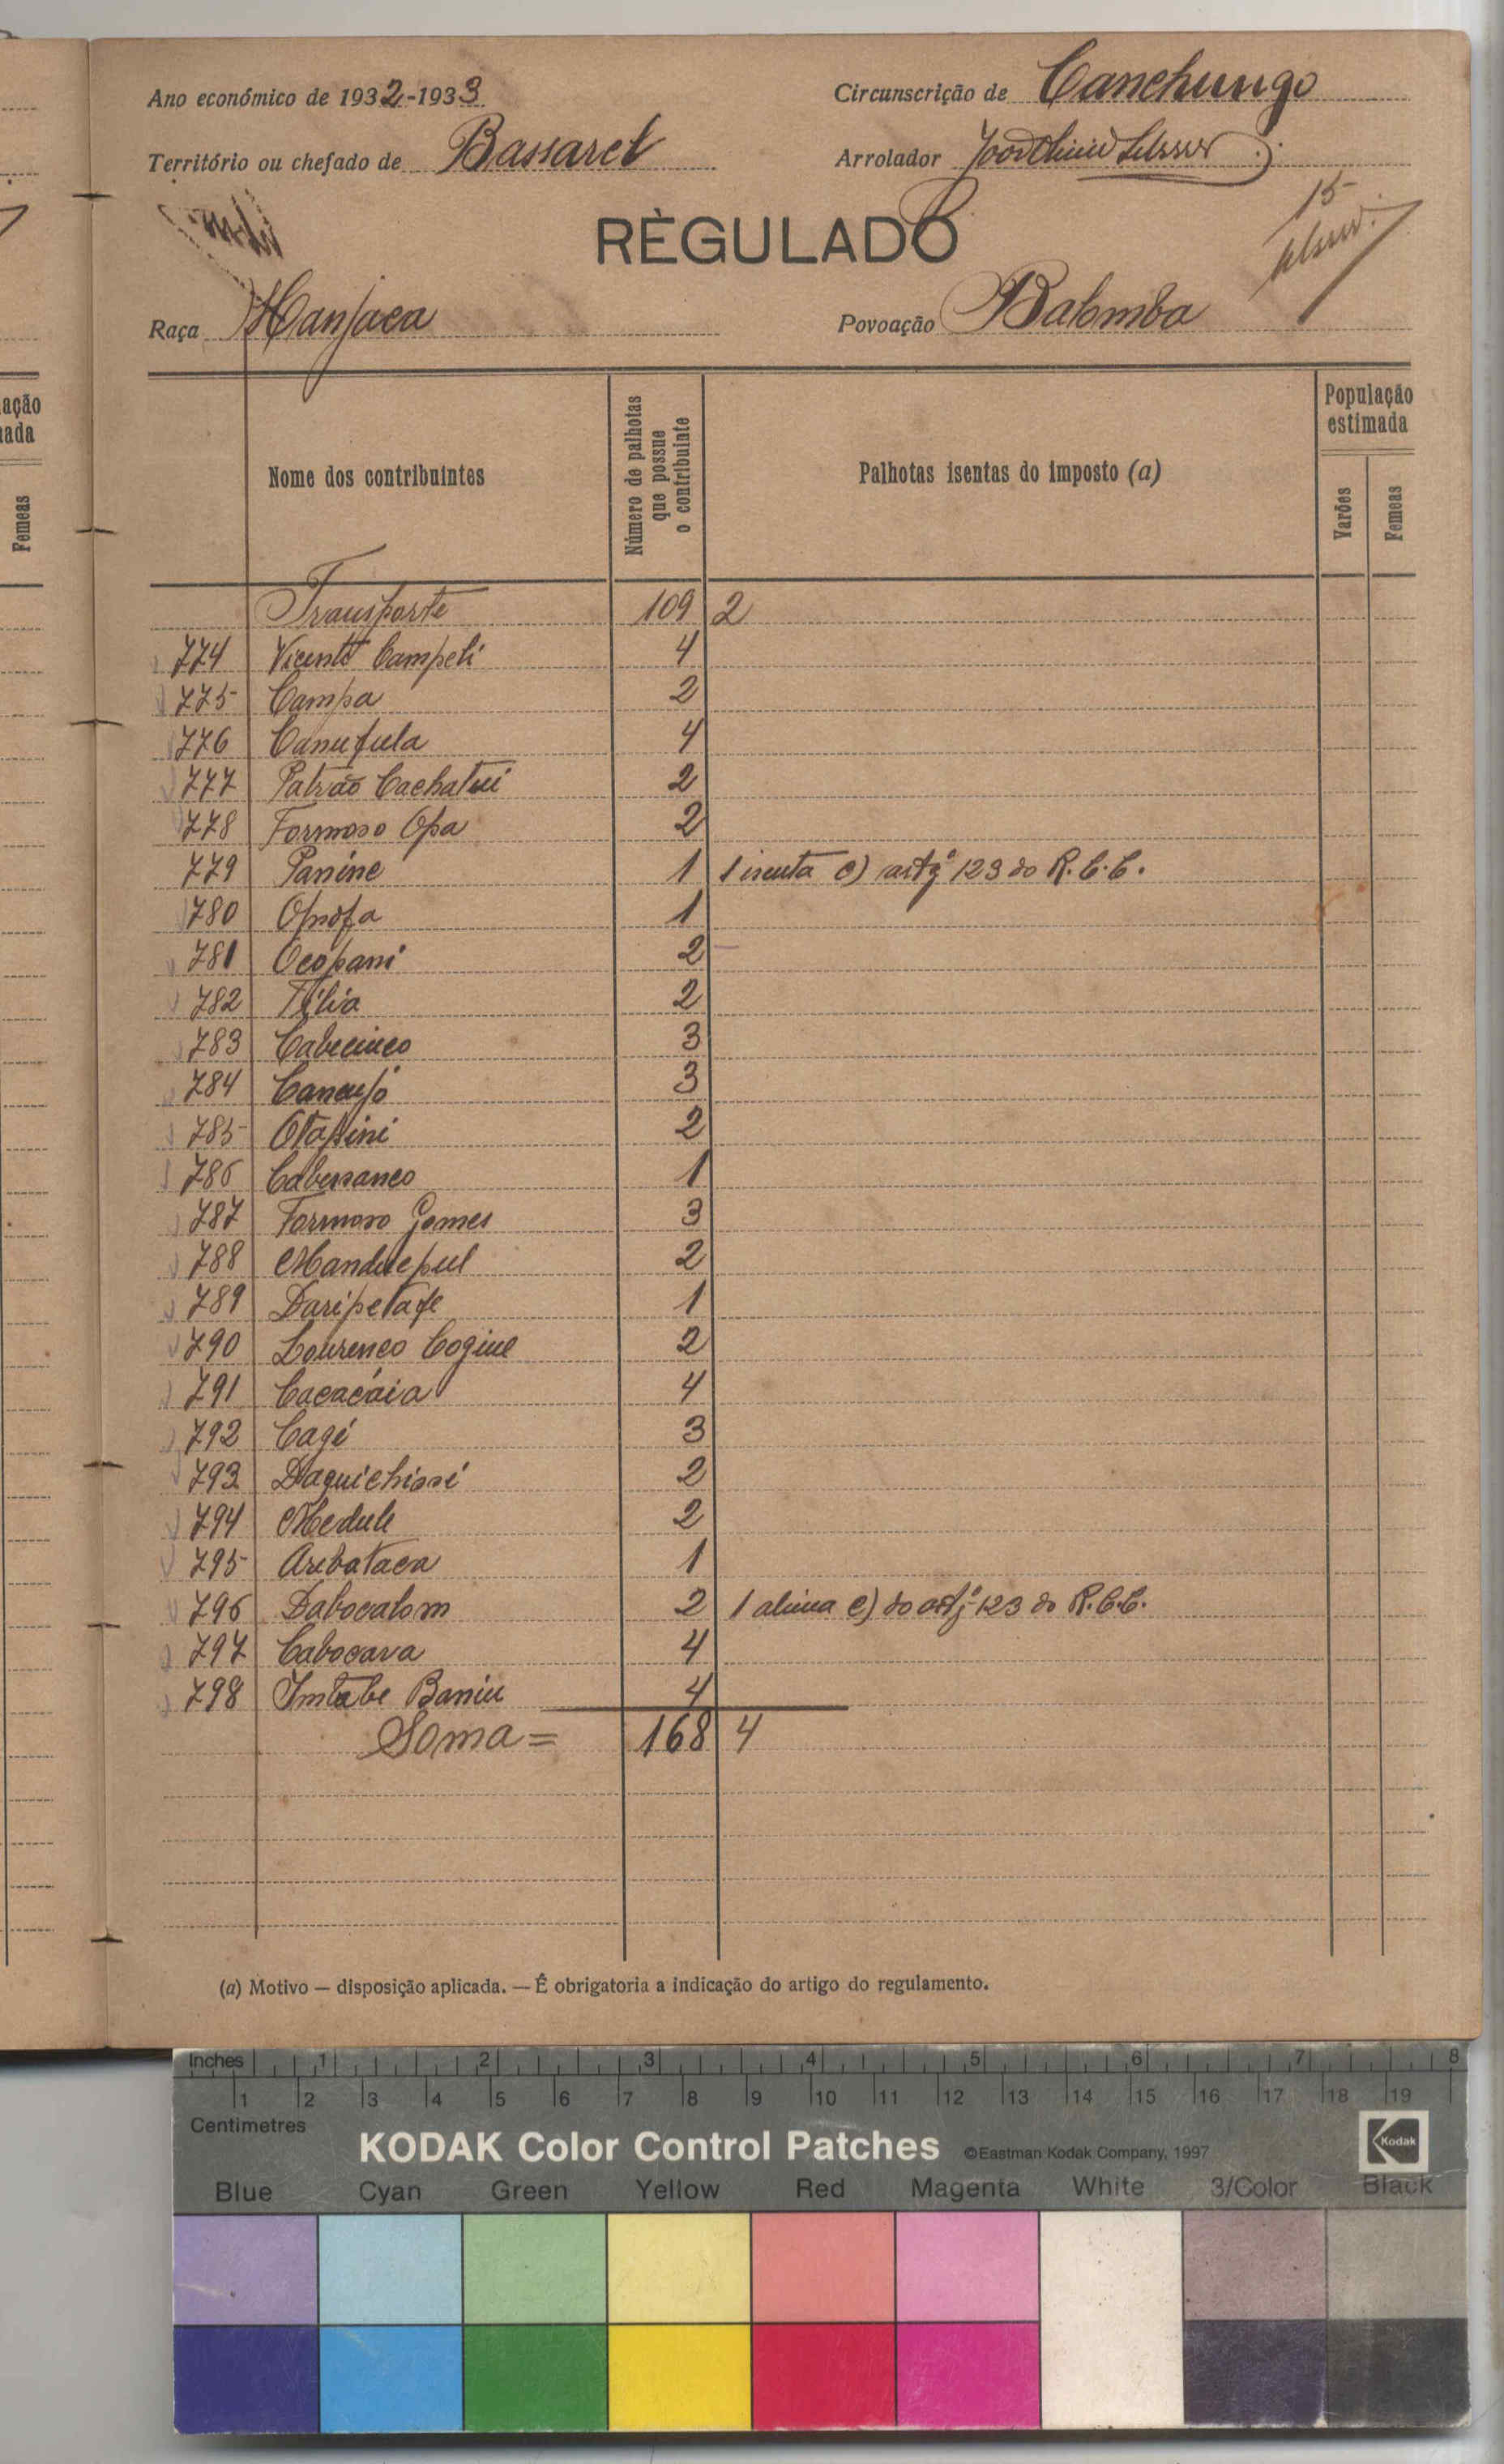 Ano económico de 1932-1933
Circunscrição de Canchungo
Território ou chefado de Bassarel
Arrolador
15
RÈGULADO
Raça Manjaca
Povoação Balomba
Nome dos contribuintes
Número de palhotas que possue o contribuinte
Palhotas isentas do imposto (a)
População estimada
Varões
Femeas
ação
ada
Femeas
Transporte 109 2
774 Vicente Campeli 4
775 Campa 2
776 Canufula 4
777 Patrão Cachatui 2
778 Formoso Opa 2
779 Panine 1 1 isenta c) artgº 123 do R.C.C.
780 Opofa 1
781 Ocopani 2
782 Tilia 2
783 Cabecinco 3
784 Canaujó 3
785 Otapini 2
786 Cabusanco 1
787 Formoso Gomes 3
788 Manduepul 2
789 Daripetafe 1
790 Lourenco Cogine 2
791 Cacacáia 4
792 Cagi 3
793 Daquichissi 2
794 Medule 2
795 Arubataca 1
796 Dabocalom 2 1 alinea c) do artgº 123 do R.C.C.
797 Cabocava 4
798 Intabe Baniu 4
Soma = 168 4
(a) Motivo — disposição aplicada. — É obrigatoria a indicação do artigo do regulamento.
Inches 1 2 3 4 5 6 7 8
1 2 3 4 5 6 7 8 9 10 11 12 13 14 15 16 17 18 19
Centimetres
KODAK Color Control Patches ©Eastman Kodak Company, 1997 Kodak
Blue Cyan Green Yellow Red Magenta White 3/Color Black